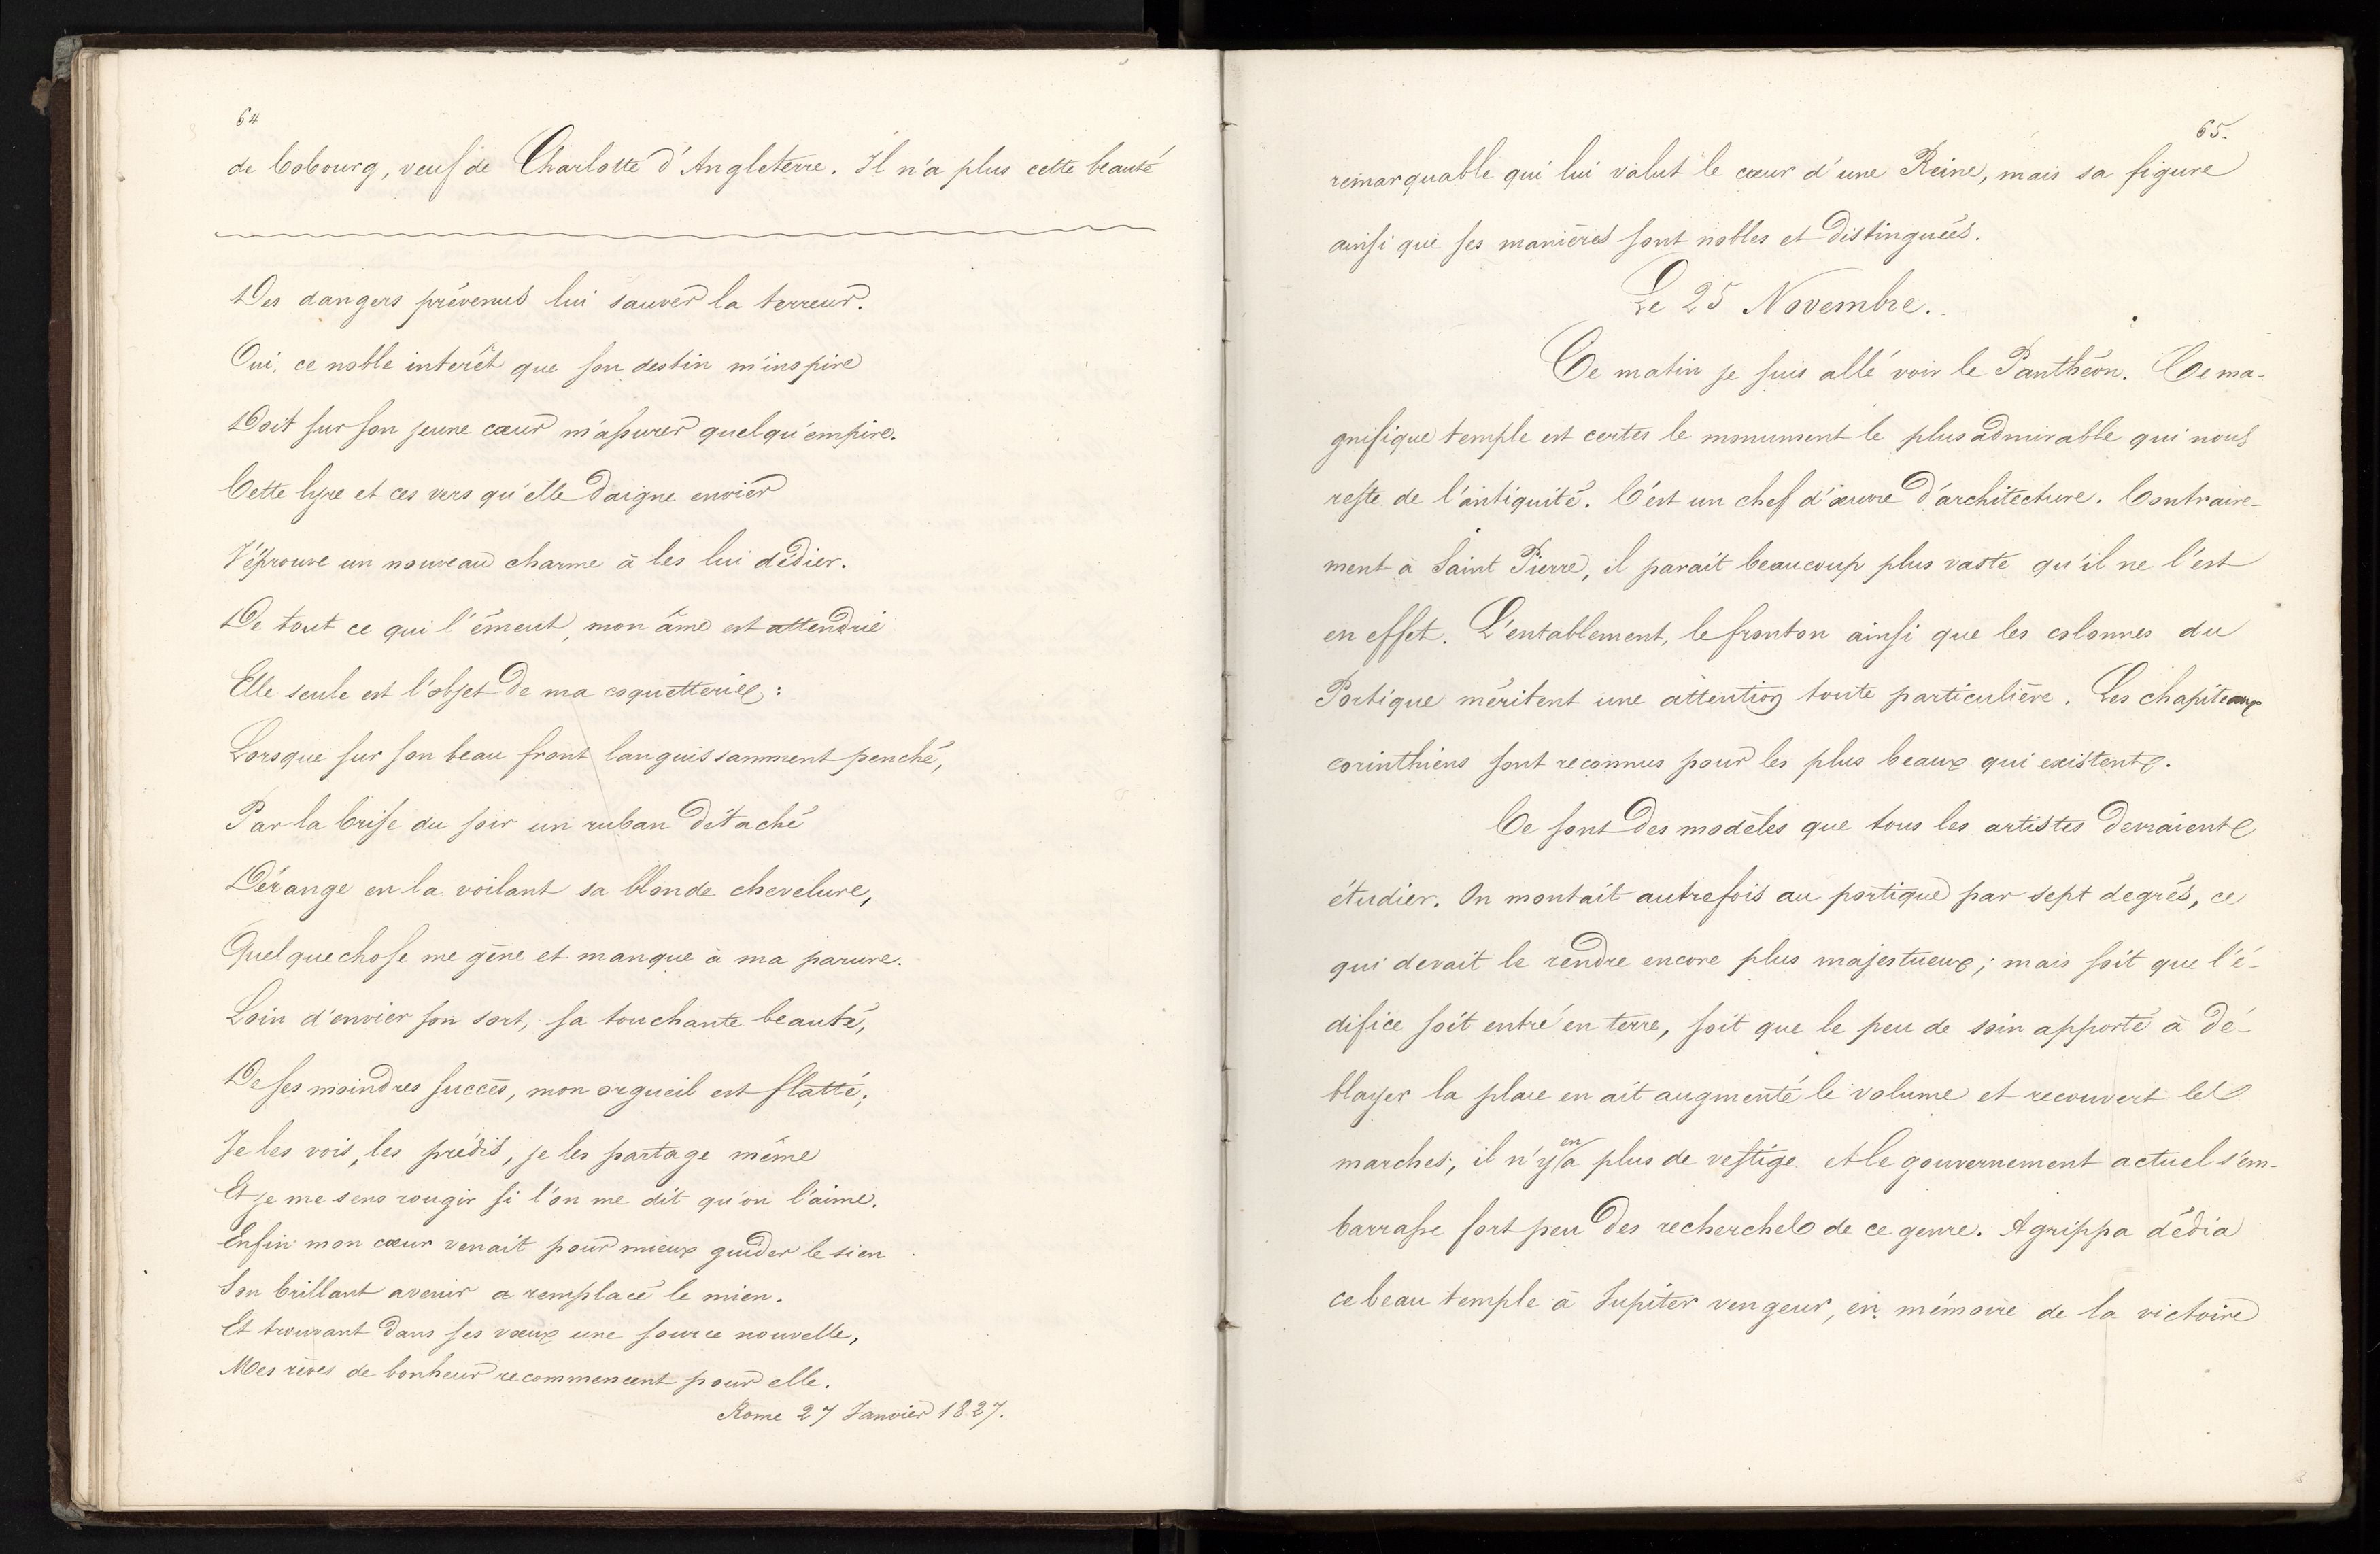 64
de Cobourg, veuf de Charlotte d'Angleterre. Il n'a plus cette beauté
Des dangers prévenus lui sauver la terreur.
Oui, ce noble interêt que son destin m'inspire
Doit sur son jeune cœur m'assurer quelqu'empire.
Cette lyre et ces vers qu'elle daigne envier
J'éprouve un nouveau charme à les lui dédier.
De tout ce qui l'émeut, mon âme est attendrie
Elle seule est l'objet de ma coquetterie :
Lorsque sur son beau front languissamment penché,
Par la brise du soir un ruban détaché
Dérange en la voilant sa blonde chevelure,
Quelquechose me gène et manque à ma parure.
Loin d'envier son sort, sa touchante beauté,
De ses moindres succès, mon orgueil est flatté;
Je les vois, les prédis, je les partage même
Et je me sens rougir si l'on me dit qu'on l'aime.
Enfin mon cœur venait pour mieux guider le sien
Son brillant avenir a remplacé le mien.
Et trouvant dans ses vœux une source nouvelle,
Mes rêves de bonheur recommencent pour elle.
Rome 27 Janvier 1827.
65.
remarquable qui lui valut le cœur d'une Reine, mais sa figure
ainsi que ses manières sont nobles et distinguées.
Le 25 Novembre.
Ce matin je suis allé voir le Panthéon. Ce ma-
gnifique temple est certes le monument le plus admirable qui nous
reste de l'antiquité. C'est un chef d'œuvre d'architecture. Contraire-
ment à Saint Pierre, il parait beaucoup plus vaste qu'il ne l'est
en effet. L'entablement, le fronton ainsi que les colonnes du
Portique méritent une attention toute particulière. Les chapiteaux
corinthiens sont reconnus pour les plus beaux qui existent.
Ce sont des modèles que tous les artistes devraient
étudier. On montait autrefois au portique par sept degrés, ce
qui devait le rendre encore plus majestueux; mais soit que l'é-
difice soit entré en terre, soit que le peu de soin apporté à dé-
blayer la place en ait augmenté le volume et recouvert les
marches, il n'y en a plus de vestige. Et le gouvernement actuel s'em-
barrasse fort peu des recherches de ce genre. Agrippa dédia
ce beau temple à Jupiter vengeur, en mémoire de la victoire